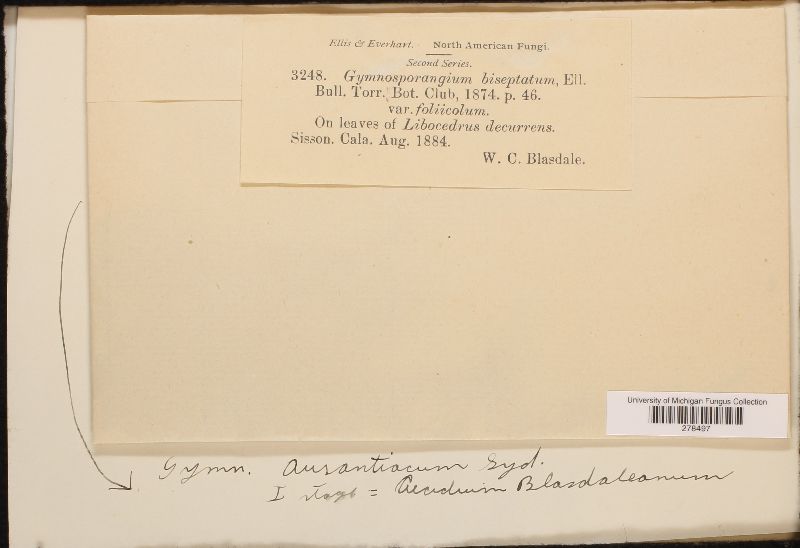 Ellis & Everhart. North American Fungi.
Second Series.
3248. Gymnosporangium biseptatum, Ell.
Bull. Torr. Bot. Club, 1874. p. 46.
var. foliicolum.
On leaves of Libocedrus decurrens.
Sisson. Cala. Aug. 1884.
W. C. Blasdale.
University of Michigan Fungus Collection
278497
Gymn. aurantiacum Syd.
I stage = Aecidium Blasdaleanum